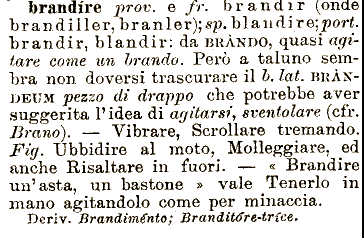 brandíre prov. e fr. brandir (onde
brandiller, branler); sp. blandire; port.
brandir, blandir: da BRÀNDO, quasi agi-
tare come un brando. Però a taluno sem-
bra non doversi trascurare il b. lat. BRÀN-
DEUM pezzo di drappo che potrebbe aver
suggerita l'idea di agitarsi, sventolare (cfr.
Brano). — Vibrare, Scrollare tremando.
Fig. Ubbidire al moto, Molleggiare, ed
anche Risaltare in fuori. — « Brandire
un'asta, un bastone » vale Tenerlo in
mano agitandolo come per minaccia.
Deriv. Brandiménto; Branditóre-tríce.